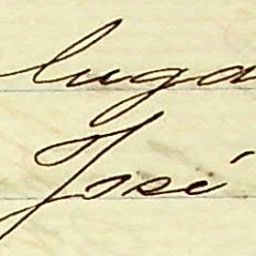 luga
José